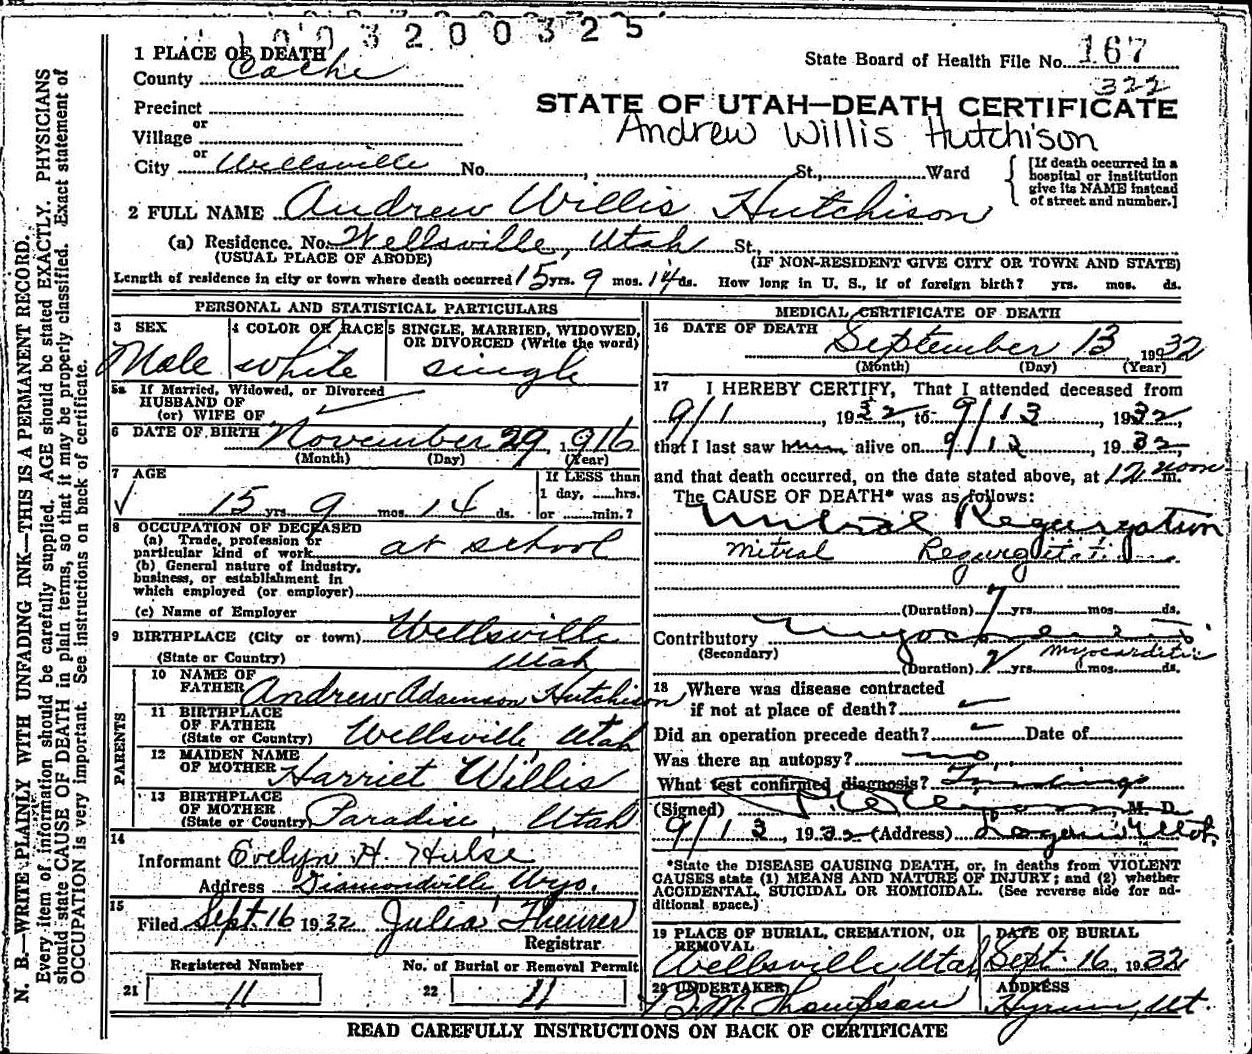 1003200325
1 PLACE OF DEATH
County Cache
State Board of Health File No. 167
322
Precinct
or
Village
or
City Wellsville No. , St., Ward
STATE OF UTAH—DEATH CERTIFICATE
Andrew Willis Hutchison
[If death occurred in a
hospital or institution
give its NAME instead
of street and number.]
2 FULL NAME Andrew Willis Hutchison
(a) Residence. No. Wellsville, Utah St.,
(USUAL PLACE OF ABODE) (IF NON-RESIDENT GIVE CITY OR TOWN AND STATE)
Length of residence in city or town where death occurred 15 yrs. 9 mos. 14 ds. How long in U. S., if of foreign birth? yrs. mos. ds.
PERSONAL AND STATISTICAL PARTICULARS
3 SEX
Male
4 COLOR OR RACE
White
5 SINGLE, MARRIED, WIDOWED,
OR DIVORCED (Write the word)
single
5a If Married, Widowed, or Divorced
HUSBAND OF
(or) WIFE OF
6 DATE OF BIRTH November 29, 1916
(Month) (Day) (Year)
7 AGE
15 yrs. 9 mos. 14 ds.
If LESS than
1 day, ......hrs.
or ......min.?
8 OCCUPATION OF DECEASED
(a) Trade, profession or
particular kind of work at school
(b) General nature of industry,
business, or establishment in
which employed (or employer)
(c) Name of Employer
9 BIRTHPLACE (City or town) Wellsville
(State or Country) Utah
PARENTS
10 NAME OF
FATHER Andrew Adamson Hutchison
11 BIRTHPLACE
OF FATHER
(State or Country) Wellsville, Utah
12 MAIDEN NAME
OF MOTHER Harriet Willis
13 BIRTHPLACE
OF MOTHER
(State or Country) Paradise, Utah
14
Informant Evelyn H. Hulse
Address Diamondville, Wyo.
15
Filed Sept. 16 1932 Julia Theurer
Registrar
Registered Number
21 11
No. of Burial or Removal Permit
22 11
MEDICAL CERTIFICATE OF DEATH
16 DATE OF DEATH September 13, 1932
(Month) (Day) (Year)
17 I HEREBY CERTIFY, That I attended deceased from
9/1, 1932, to 9/13, 1932,
that I last saw him alive on 9/12, 1932,
and that death occurred, on the date stated above, at 12 noon m.
The CAUSE OF DEATH* was as follows:
Mitral Regurgitation
Mitral Regurgitati
(Duration) yrs. mos. ds.
Contributory Myocarditis
(Secondary) Myocarditis
(Duration) 2 yrs. mos. ds.
18 Where was disease contracted
if not at place of death?
Did an operation precede death? Date of
Was there an autopsy? no
What test confirmed diagnosis? Findings
(Signed) M. D.
9/13, 1932 (Address) Logan Utah
*State the DISEASE CAUSING DEATH, or, in deaths from VIOLENT
CAUSES state (1) MEANS AND NATURE OF INJURY; and (2) whether
ACCIDENTAL, SUICIDAL OR HOMICIDAL. (See reverse side for ad-
ditional space.)
19 PLACE OF BURIAL, CREMATION, OR
REMOVAL
Wellsville, Utah
DATE OF BURIAL
Sept. 16, 1932
20 UNDERTAKER
M. Thompson
ADDRESS
Hyrum, Ut.
READ CAREFULLY INSTRUCTIONS ON BACK OF CERTIFICATE
N. B.—WRITE PLAINLY WITH UNFADING INK—THIS IS A PERMANENT RECORD.
Every item of information should be carefully supplied. AGE should be stated EXACTLY. PHYSICIANS
should state CAUSE OF DEATH in plain terms, so that it may be properly classified. Exact statement of
OCCUPATION is very important. See instructions on back of certificate.